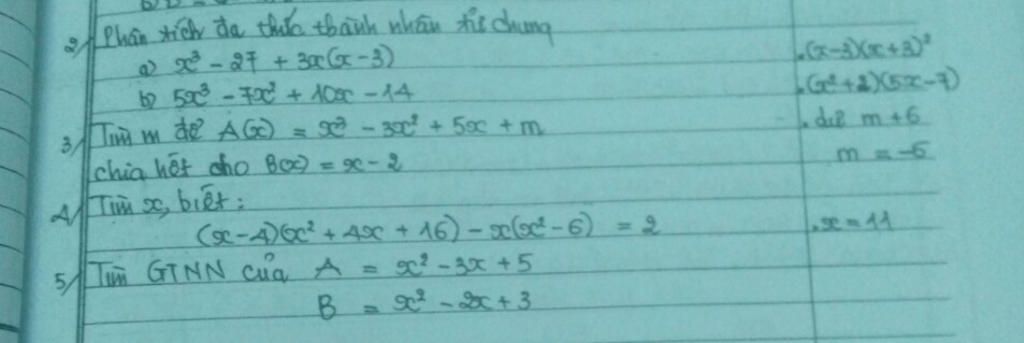 2/ Phân tích đa thức thành nhân tử chung
a) x³ - 27 + 3x(x-3)
.(x-3)(x+3)²
b) 5x³ - 7x² + 10x - 14
.(x²+2)(5x-7)
3/ Tìm m để A(x) = x³ - 3x² + 5x + m
. dư m+6
chia hết cho B(x) = x - 2
m = -6
4/ Tìm x, biết:
(x-4)(x² + 4x + 16) - x(x²-6) = 2
.x = 11
5/ Tìm GTNN của A = x² - 3x + 5
B = x² - 2x + 3